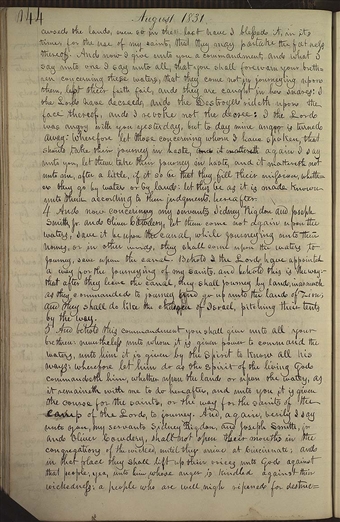 144 August 1831.
cursed the lands, even so in the last have I blessed it, in its
times for the use of my saints, that they may partake the fatness
thereof. And now I give unto you a commandment, and what I
say unto one I say unto all, that you shall forewarn your breth-
ren concerning these waters, that they come not in journeying upon
them, lest their faith fail, and they are caught in her snares: I
the Lord have decreed, and the Destroyer rideth upon the
face thereof, and I revoke not the decree: I the Lord
was angry with you yesterday, but to day mine anger is turned
away: Wherefore let those concerning whom I have spoken, that
should take their journey in haste, again I say
unto you, let them take their journey in haste, and it mattereth not
unto me, after a little, if it so be that they fill their mission, whether
they go by water or by land: let this be as it is made known
unto them according to their judgments, hereafter.
4 And now concerning my servants Sydney Rigdon and Joseph
Smith, Jr. and Oliver Cowdery, let them come not again upon the
waters, save it be upon the canal, while journeying unto their
homes, or in other words, they shall come upon the waters to
journey, save upon the canal. Behold I the Lord have appointed
a way for the journeying of my saints, and behold this is the way:
that after they leave the canal, they shall journey by land, inasmuch
as they are commanded to journey and go up unto the land of Zion;
and they shall do like the children of Israel, pitching their tents
by the way.
5 And behold this commandment you shall give unto all your
brethren: nevertheless unto whom it is given power to command the
waters, unto him it is given by the Spirit to know all his
ways: wherefore let him do as the Spirit of the living God
commandeth him, whether upon the land or upon the waters, as
it remaineth with me to do hereafter, and unto you it is given
the course for the saints, or the way for the saints of the
camp of the Lord, to journey. And, again, verily I say
unto you, my servants Sydney Rigdon, and Joseph Smith, jr
and Oliver Cowdery, shall not open their mouths in the
congregations of the wicked, until they arrive at Cincinnati: and
in that place they shall lift up their voices unto God against
that people, yea, unto him whose anger is kindled against their
wickedness: a people who are well nigh ripened for destruc-